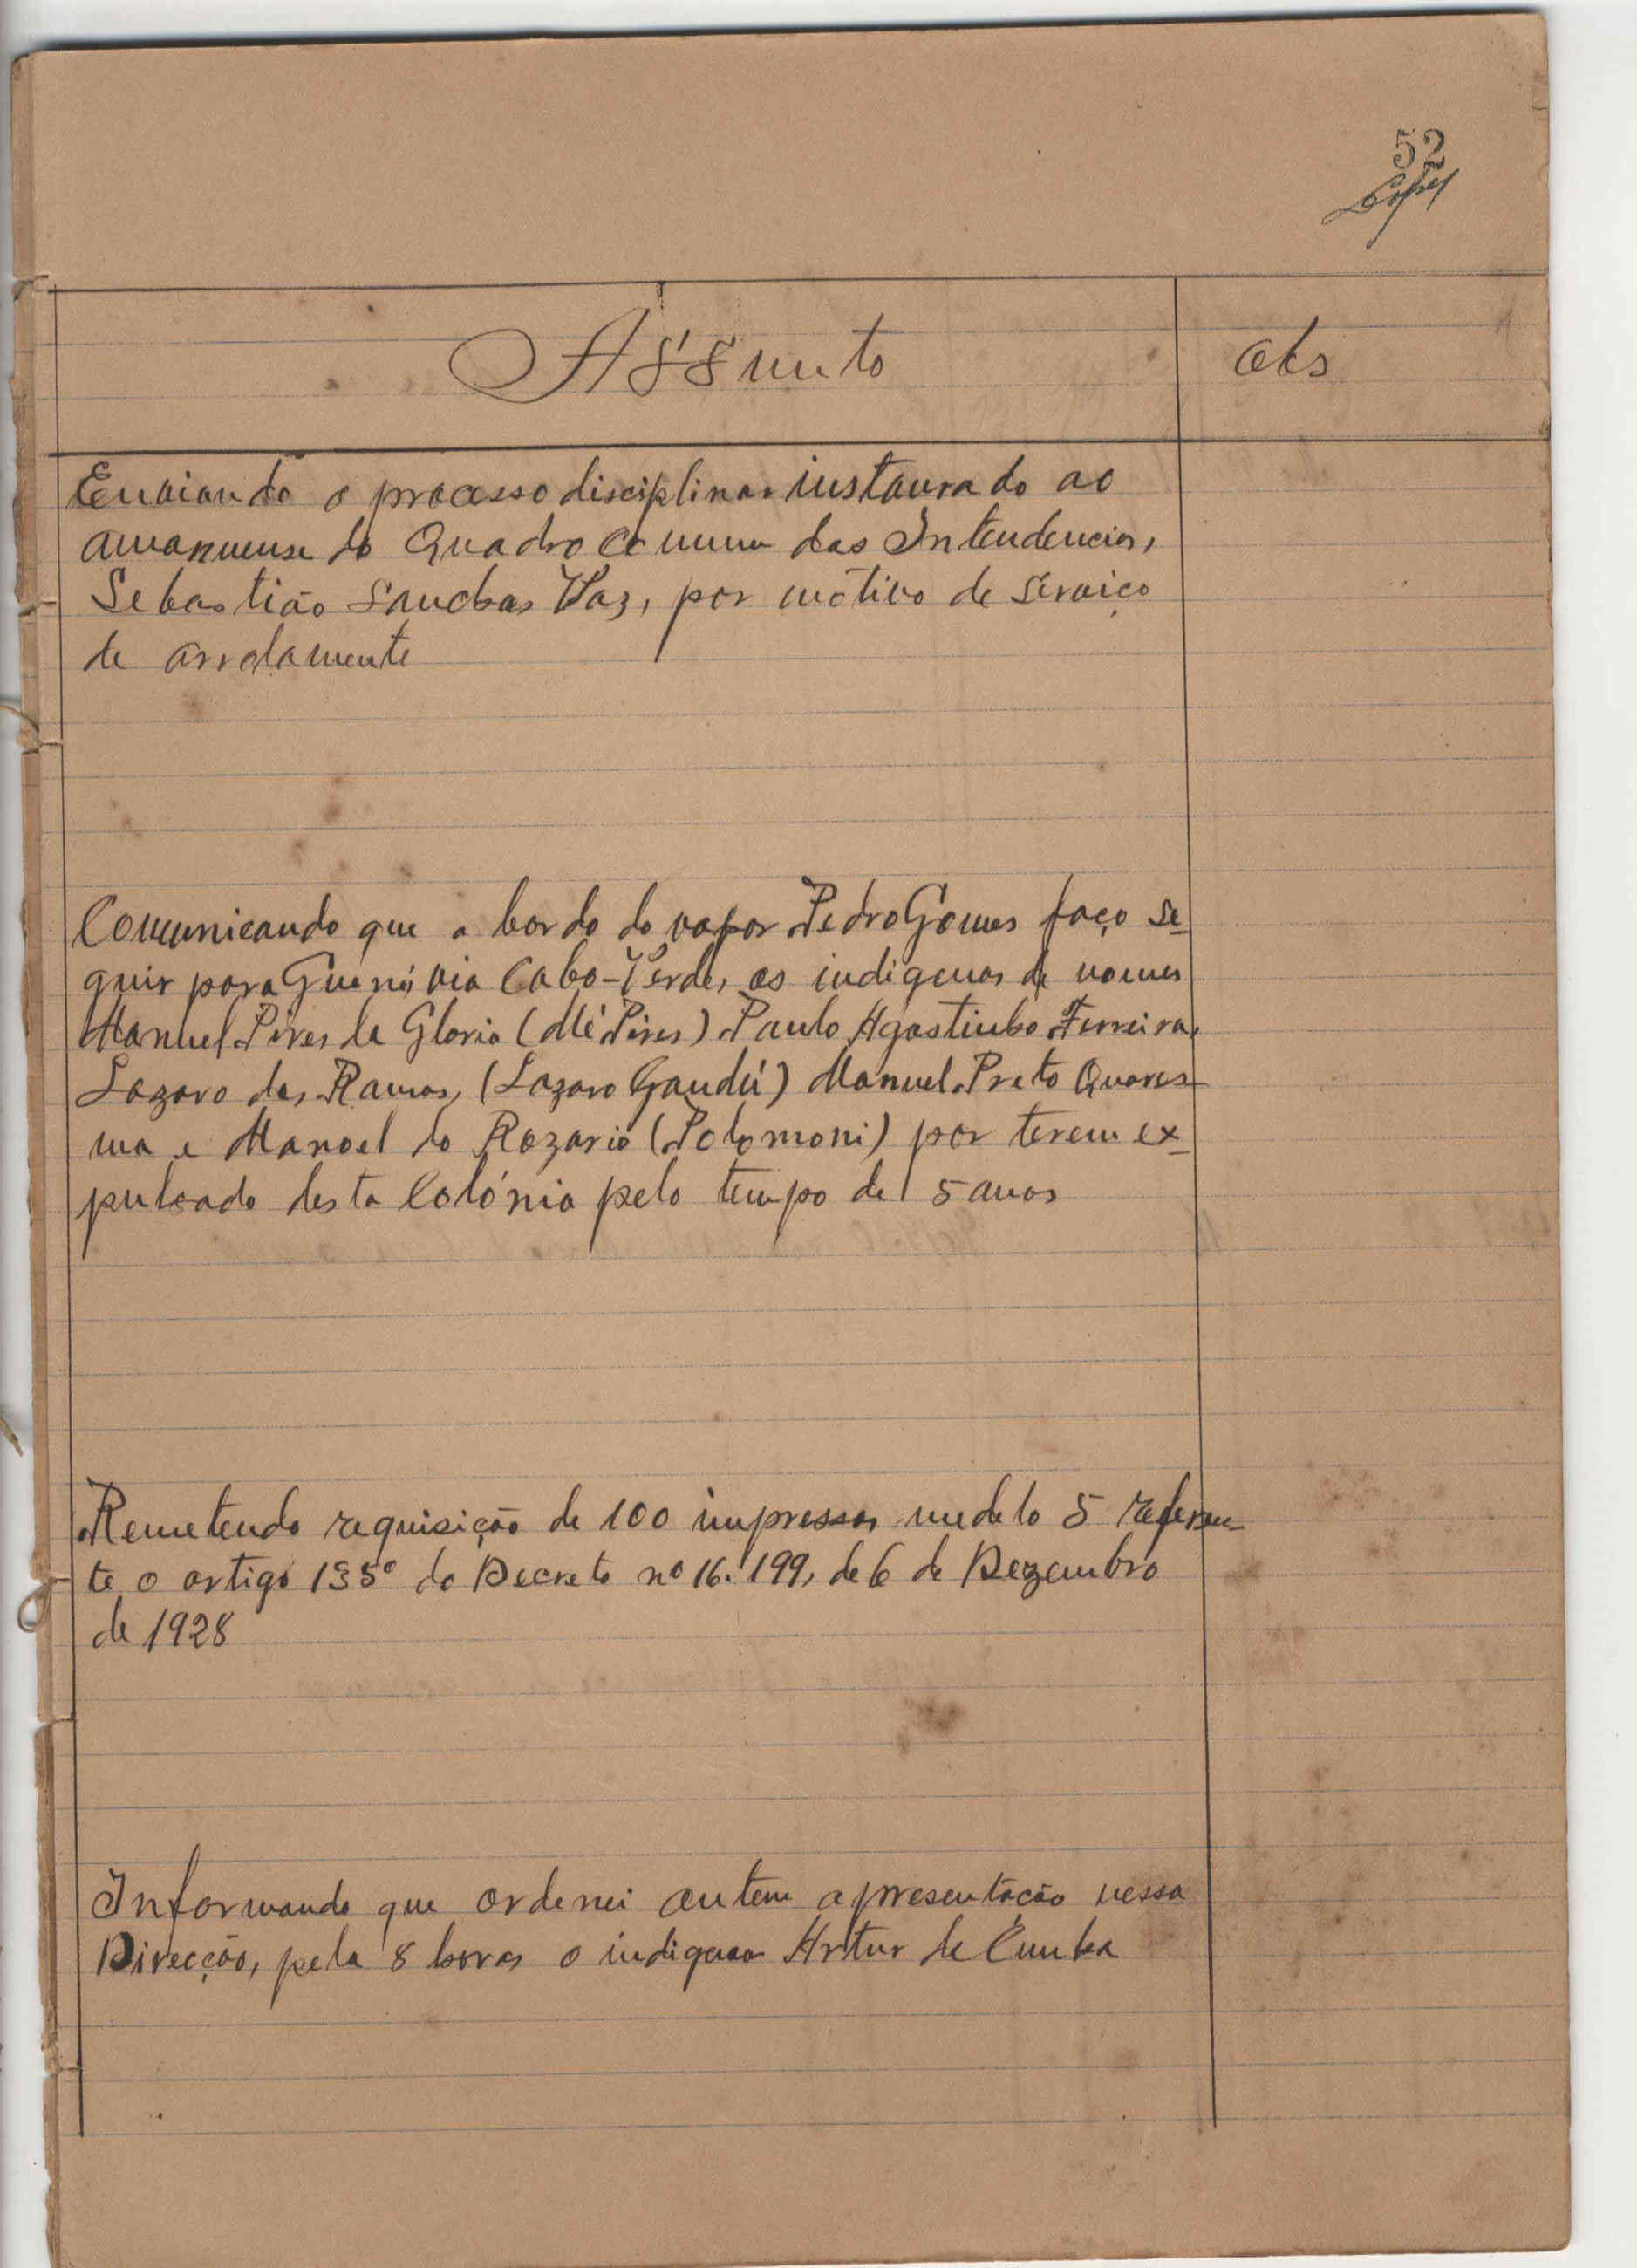 52
Assunto
Obs
Enviando o processo disciplinar instaurado ao
amanuense do Quadro Comum das Intendencias,
Sebastião Sanches Vaz, por mótivo de serviço
de arrolamento
Comunicando que a bordo do vapor Pedro Gomes faço se-
guir para Guené, via Cabo-Verde, os indigenas de nomes
Manuel Pires da Gloria (Mé Pires) Paulo Agostinho Ferreira,
Lazaro dos Ramos, (Lazaro Gandú) Manuel Preto Quares-
ma e Manoel do Rozario (Polomoni) por terem ex-
pulsado desta Colónia pelo tempo de 5 anos
Remetendo requisição de 100 impressos modelo 5 referen-
te o artigo 135º do Decreto nº 16.199, de 6 de Dezembro
de 1928
Informando que ordenei ontem apresentação nessa
Direcção, pela 8 horas o indigena Artur de Cunha